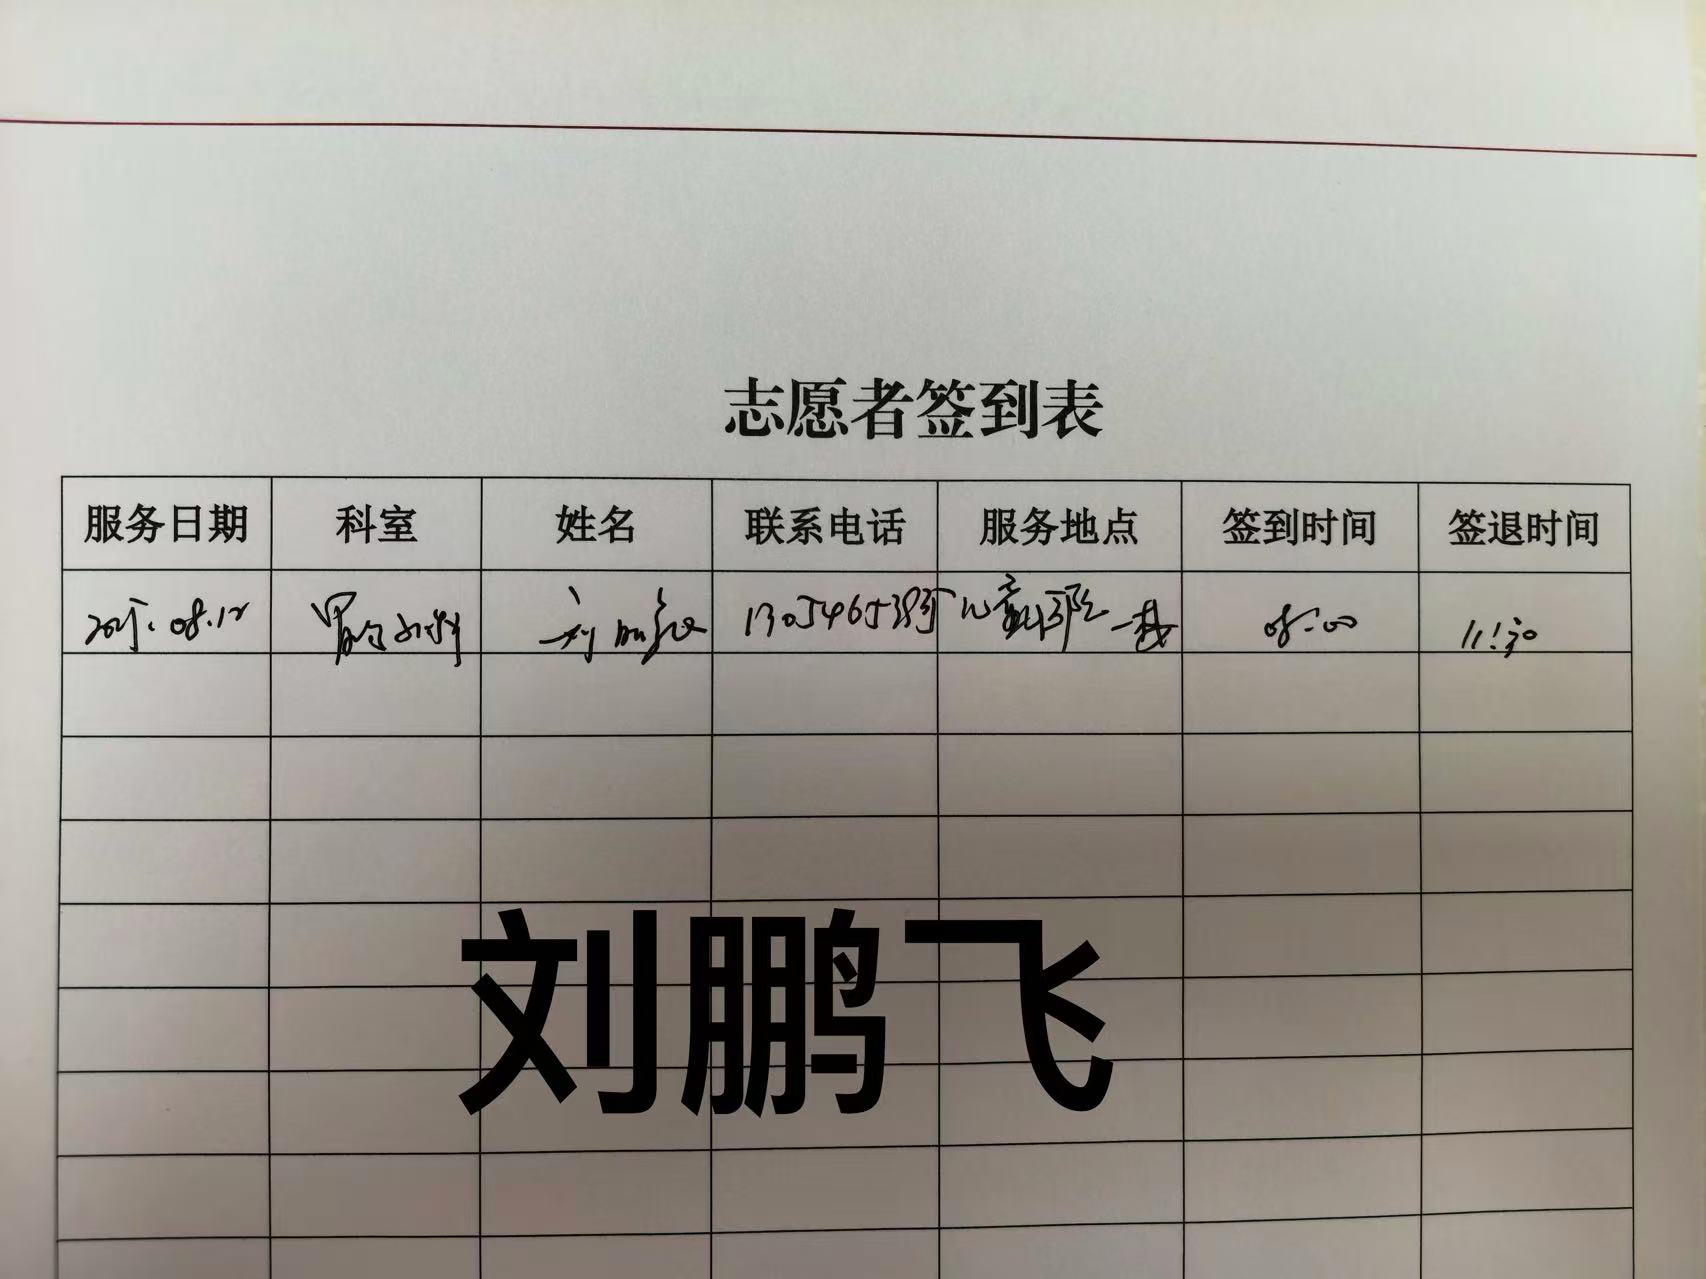 志愿者签到表
服务日期 科室 姓名 联系电话 服务地点 签到时间 签退时间
2025.08.12 胃肠外科 刘鹏飞 儿童医院一楼 08:00 11:30
刘鹏飞